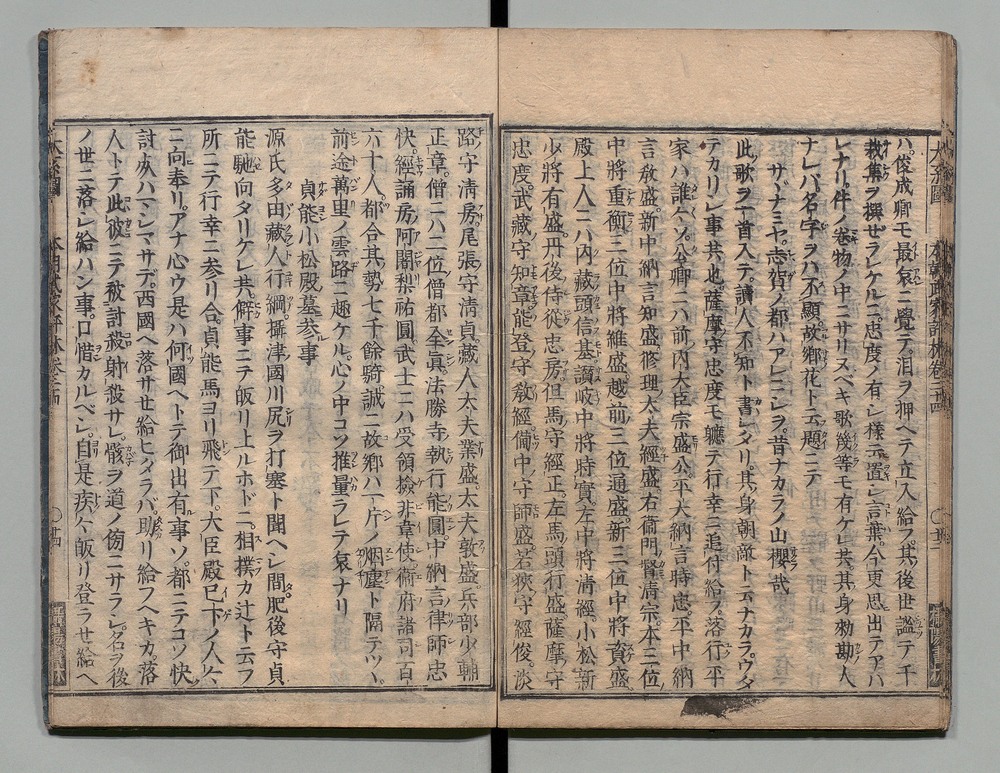 ハ。俊成卿モ最哀ニ覺テ。泪ヲ押ヘテ立入給フ。其後世謐テ千
載集ヲ撰ゼラレケルニ。忠度ノ有シ樣。云置シ言葉。今更思出テアハ
レナリ。件ノ巻物ノ中ニサリヌベキ歌幾等モ有ケレ共。其身勅勘ノ人
ナレバ。名字ヲハ不顯。故郷花ト云題ニテ
サヾナミヤ。志賀ノ都ハアレニシヲ。昔ナカラノ山櫻哉
此歌ヲ一首入テ。讀人不知ト書レタリ。其身朝敵ト云ナカラ。ウタ
テカリシ事共也。薩摩守忠度モ軈テ行幸ニ追付給フ。落行平
家ハ誰々ソ。公卿ニハ前内大臣宗盛公。平大納言時忠。平中納
言教盛。新中納言知盛。修理大夫經盛。右衞門督清宗。本三位
中將重衡。三位中將維盛。越前三位通盛。新三位中將資盛。
殿上人ニハ内藏頭信基。讃岐中將時實。左中將清經。小松新
少將有盛。丹後侍從忠房。但馬守經正。左馬頭行盛。薩摩守
忠度。武藏守知章。能登守教經。備中守師盛。若狹守經俊。淡
路守清房。尾張守清貞。藏人大夫業盛。大夫敦盛。兵部少輔
正章。僧ニハ二位僧都全眞。法勝寺執行能圓。中納言律師忠
快。經誦房阿闍梨祐圓。武士ニハ受領撿非違使。衞府諸司百
六十人。都合其勢七千餘騎。誠ニ故郷ハ一片ノ烟塵ト隔テツヽ。
前途萬里ノ雲路ニ趣ケル。心ノ中コソ推量ラレテ哀ナリ
貞能小松殿墓參事
源氏多田藏人行綱。攝津國川尻ヲ打塞ト聞ヘシ間。肥後守貞
能馳向タリケレ共。僻事ニテ皈リ上ルホドニ。相撲カ辻ト云フ
所ニテ行幸ニ參リ合。貞能馬ヨリ飛テ下。大臣殿已下ノ人々
ニ向奉リ。アナ心ウ。是ハ何國ヘトテ御出有事ソ。都ニテコソ快
討死ハマシマサデ。西國ヘ落サせ給ヒタラバ。助リ給フヘキカ。落
人トテ此彼ニテ被討殺射殺サレ。骸ヲ道ノ傍ニサラシ。名ヲ後
ノ世ニ落シ給ハン事。口惜カルベシ。自是疾々皈リ登ラサせ給ヘ